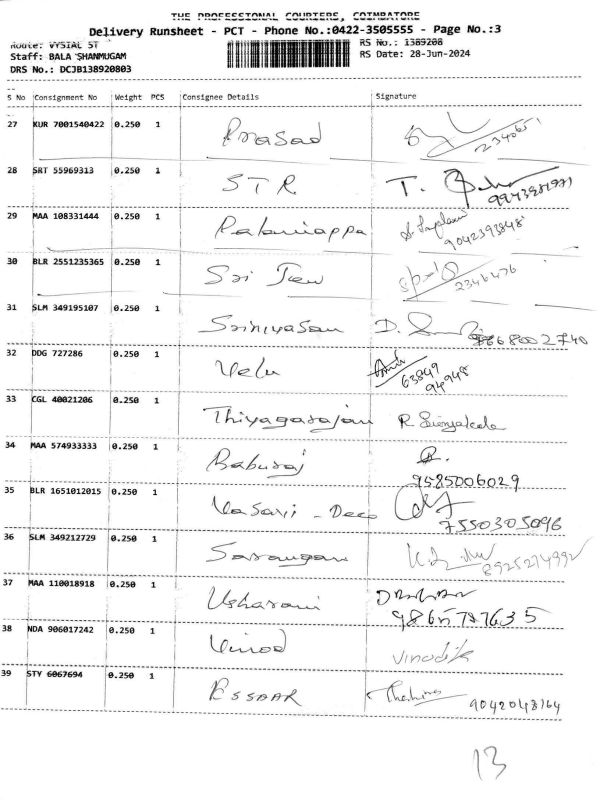 THE PROFESSIONAL COURIERS, COIMBATORE
Delivery Runsheet - PCT - Phone No.:0422-3505555 - Page No.:3
Route: VYSIAL ST RS No.: 1389208
Staff: BALA SHANMUGAM RS Date: 28-Jun-2024
DRS No.: DCJB138920803
S No Consignment No Weight PCS Consignee Details Signature
27 KUR 7001540422 0.250 1 Prasad 2340651
28 SRT 55969313 0.250 1 STR T.
9943981971
29 MAA 108331444 0.250 1 Palaniappa
9042393848
30 BLR 2551235365 0.250 1 Sri
2346476
31 SLM 349195107 0.250 1 Srinivasan D.
8002740
32 DDG 727286 0.250 1 Velu
63849
94948
33 CGL 40021206 0.250 1 Thiyagarajan R
34 MAA 574933333 0.250 1 Baburaj
9585006029
35 BLR 1651012015 0.250 1 Vasavi - Deco
7550305096
36 SLM 349212729 0.250 1 Sarangan
8925274992
37 MAA 110018918 0.250 1 Usharani
9865797635
38 NDA 906017242 0.250 1 Vinod Vinodik
39 STY 6067694 0.250 1 ESSAAR 9042048164
13